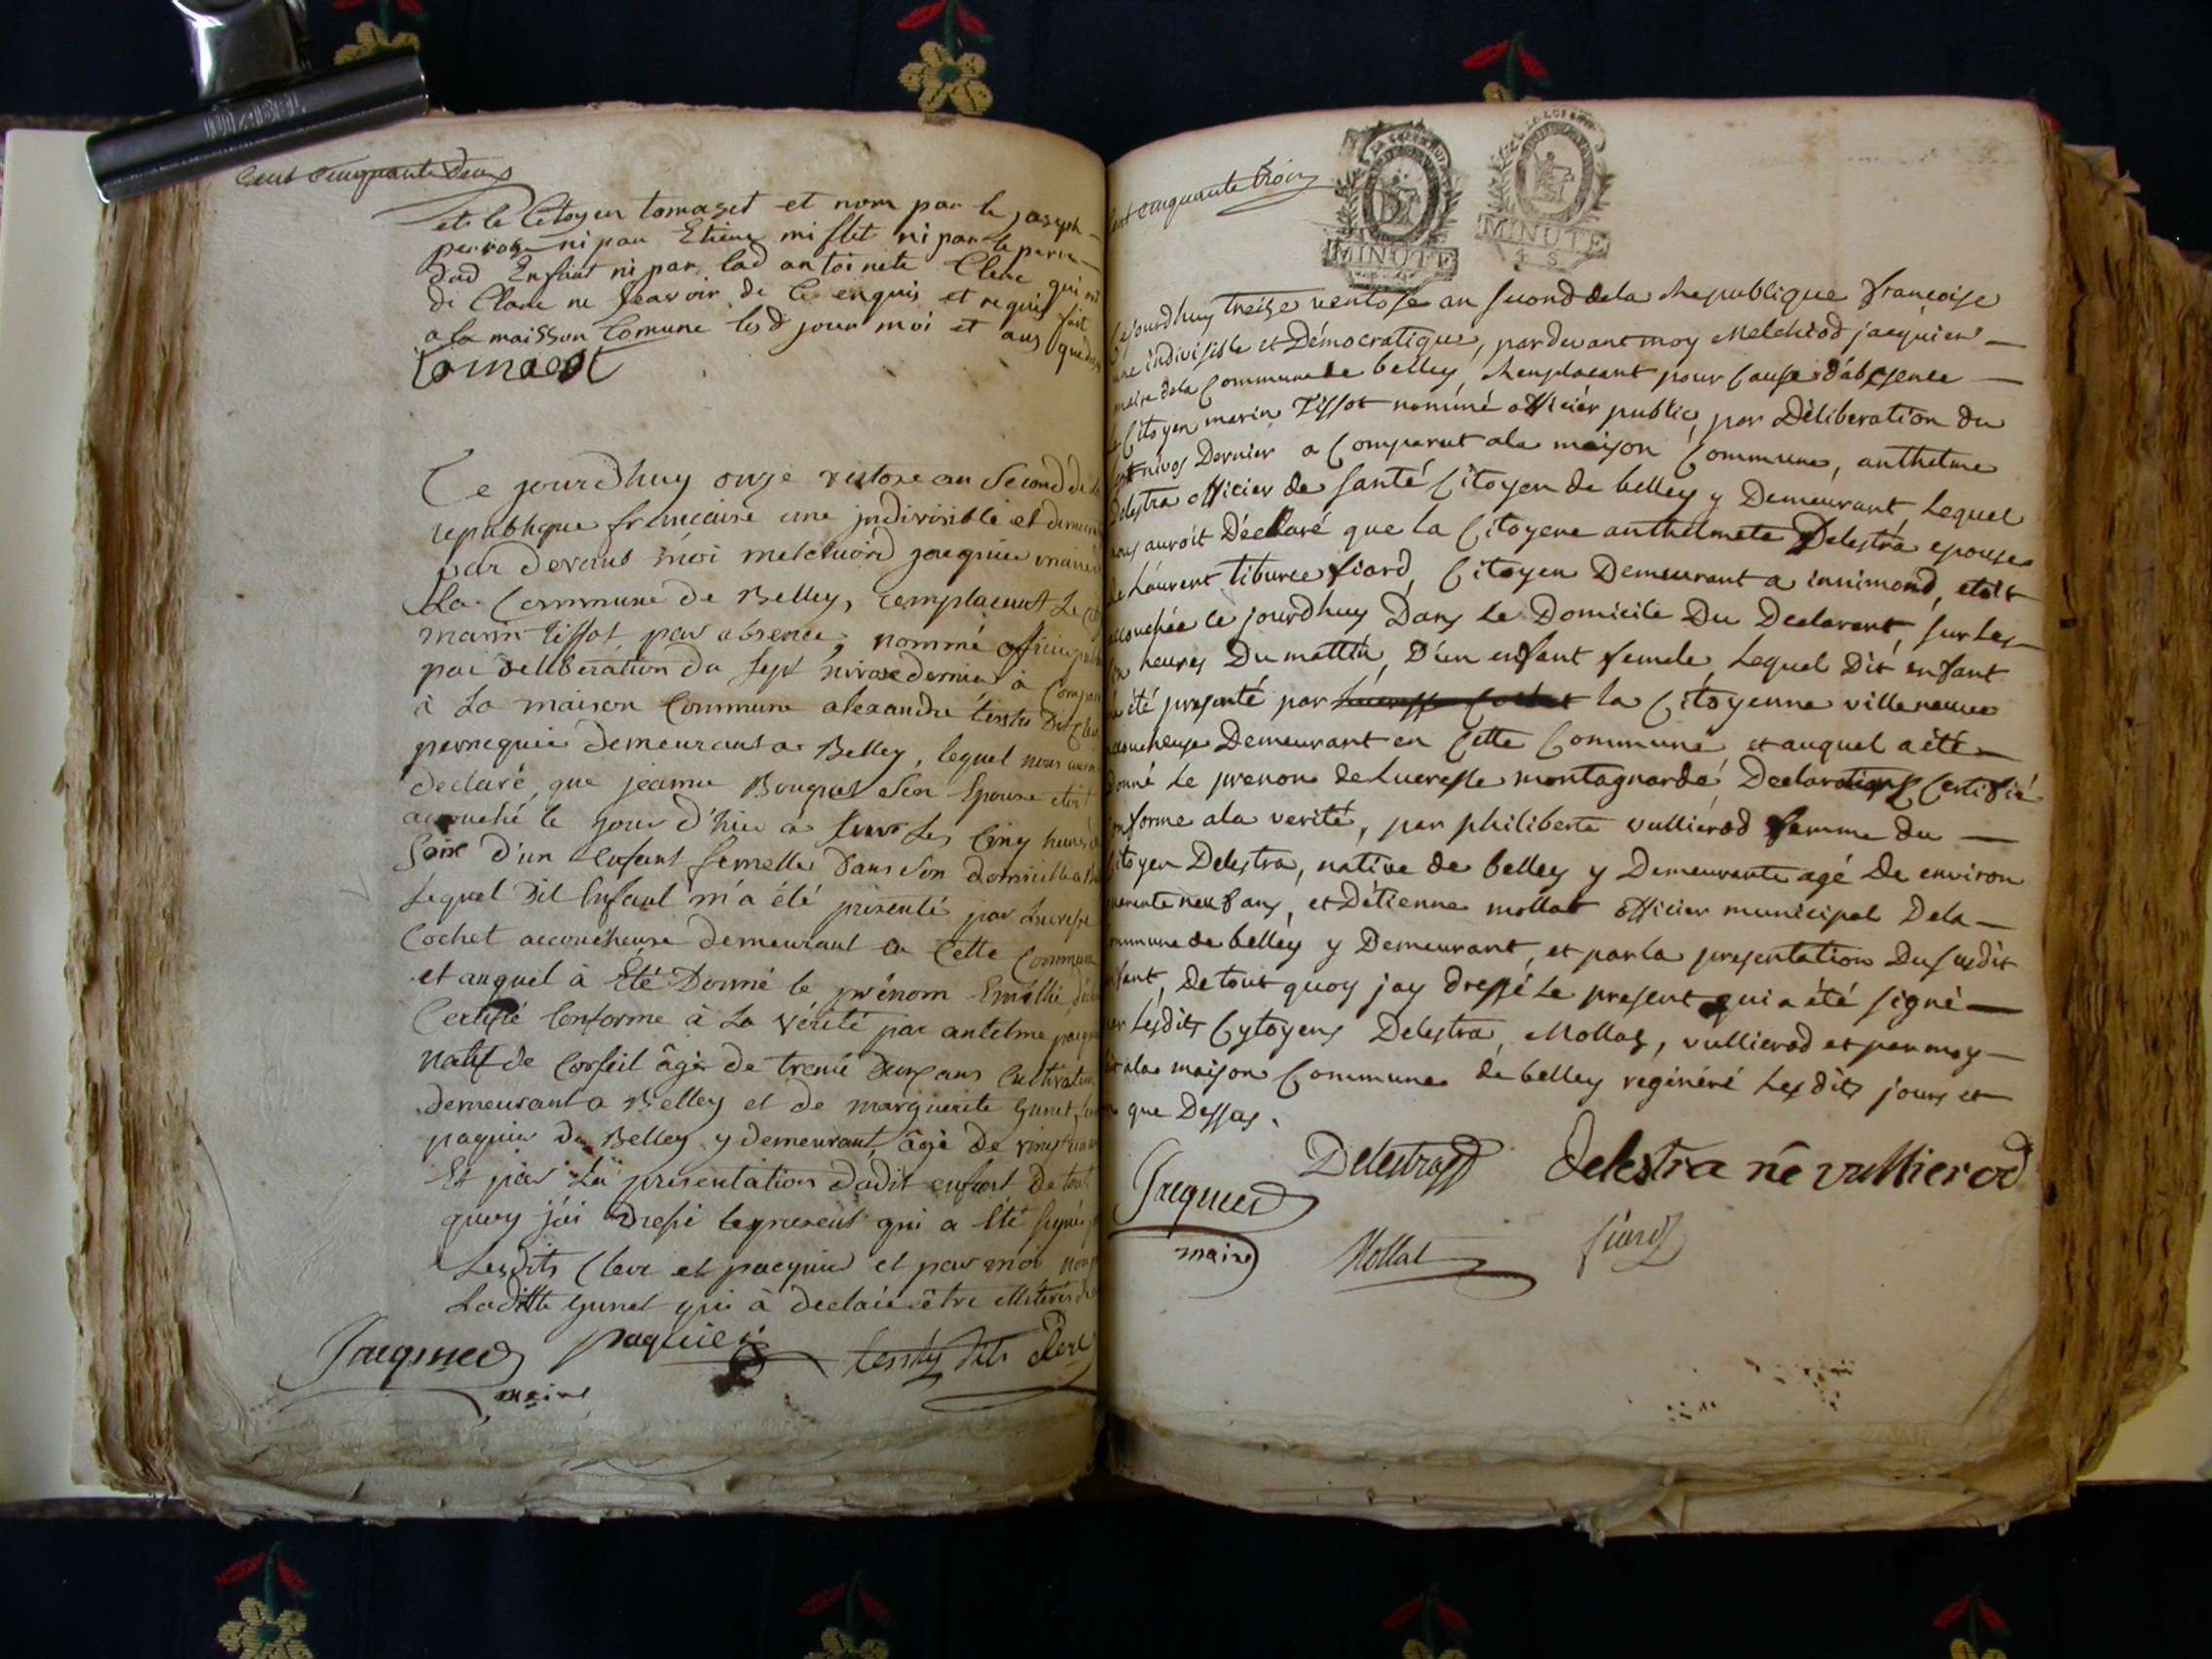 Cent Cinquante Deux
et le Citoyen tomaset et nom par le joseph
ni par Etiene miflet ni par le
dud Enfant ni par lad antoinete Clerc qui
de Clare ne Scavoir de Ce enquis et requis fait
a la maisson Comune lesd jour moi et ans que
tomaset
Ce jourdhuy onze vestose an Second de
republique francaise une jndivisible et
par devant moi melchiord jacquier maire
La Commune de Belley, remplacent Le
marin tissot par absence, nommé officier
par deliberation du sept nivose dernier à
à La maison Commune alexandre tersty Dit
perruquier demeurant a Belley, lequel nous
declaré, que jeanne Bouquet Son Epouse etoit
accouché le jour d'hier à sur les Cinq heures
Soir d'un Enfant femelle Dans Son domicille
Lequel Dit Enfant m'a été presenté par Lucresse
Cochet accoucheuse demeurant en Cette Commune
et auquel à Été Donné le prénom Emillie
Certifié Conforme à La vérité par antelme
natif de Corfeil âgé de trente Deux ans Cultivateur
demeurant a Belley et de marguerite Gunet
paquier de Belley y demeurant, âgé de
Et par La présentation dudit enfant De tout
quoy j'ai Dressé le present qui a été signé
Lesdits Clerc et pacquier et par moi
Laditte Gunet qui à declaré être
Jacquier paquier tersty dit Clerc
maire
cent cinquante trois
MINUTE
MINUTE
Cejourdhuy treize ventose an second dela Republique françoise
une indivisible et Démocratique, pardevant moy Melchiod jacquier
maire dela Commune de belley, Remplacant pour Cause d'absence
Citoyen marin Tissot nommé officier public, par Déliberation du
sept nivos Dernier a Comparut ala maison Commune, anthelme
Delestra officier de santé Citoyen de belley y Demeurant, Lequel
nous auroit Déclaré que la Citoyene anthelmete Delestra epouse
de Laurent tiburce fiard, Citoyen Demeurant a innimond, etoit
accouchée ce jourdhuy Dans Le Domicile Du Declarant, sur Les
heures Du mattin, D'un enfant femele, Lequel Dit enfant
a été presenté par la Citoyenne villeneuve
accoucheuse Demeurant en Cette Commune et auquel a été
donné Le prenom de Lucresse montagnarde Declaration Certifié
conforme ala verité, par philiberte vullierod femme du
Citoyen Delestra, native de belley y Demeurante agé De environ
quarente neuf ans, et D'étienne mollat officier municipal Dela
commune de belley y Demeurant, et par la presentation Du susdit
enfant, De tout quoy jay dressé Le present qui a été signé
par Lesdits Cytoyens Delestra, Mollat, vullierod et par moy
fait ala maison Commune de belley regénéré Lesdits jours et
an que Dessus.
Delestra delestra né vullierod
Jacquier
maire Mollat fiard